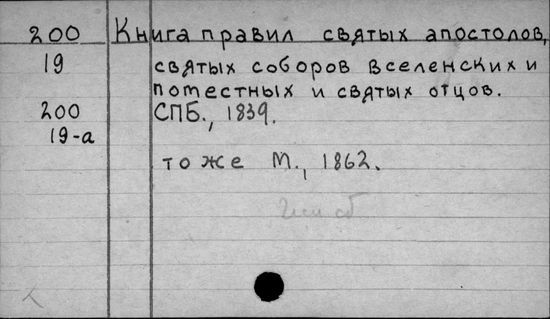 200 Книга правил святых апостолов,
19 святых соборов вселенских и
поместных и святых отцов.
200 СПБ., 1839.
19-а
то же М., 1862.